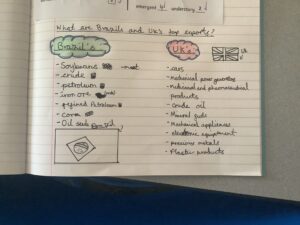 emergent 4 understory 2
What are Brazils and UK's top exports?
Brazil's
- Soyabeans - meat
- crude
- petroleum
- iron ore
- refined Petroleum
- corn
- Oil seeds
Brazil
UK's
UK
- cars
- mechanical power generators
- medicinal and pharmaceutical
products
- Crude oil
- Mineral fuels
- Mechanical appliances
- electronic equipment
- precious metals
- Plastic products